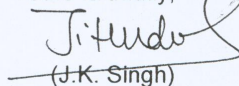 Jitendra
(J.K. Singh)